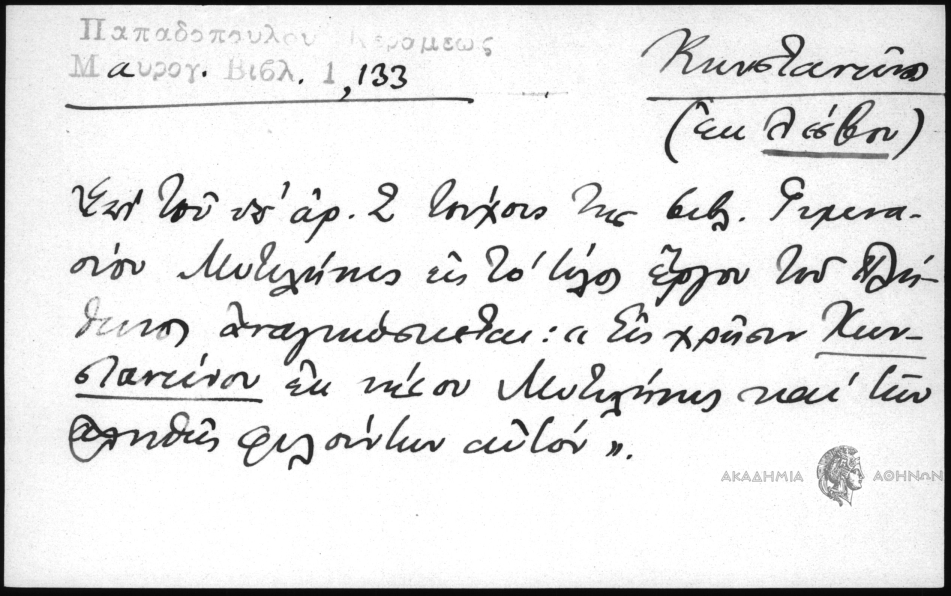 Παπαδοπούλου Κεραμεως
Μαυρογ. Βιβλ. 1, 133
Κωνσταντῖνος
(ἐκ Λέσβου)
Ἐπὶ τοῦ ὑπ' ἀρ. 2 τεύχους τῆς βιβλ. Γυμνα-
σίου Μυτιλήνης εἰς τὸ τέλος ἔργου τοῦ Πλή-
θωνος ἀναγινώσκεται: « Εἰς χρῆσιν Κων-
σταντίνου ἐκ νήσου Μυτιλήνης καὶ τῶν
ἀληθῶς φιλούντων αὐτόν».
ΑΚΑΔΗΜΙΑ ΑΘΗΝΩΝ